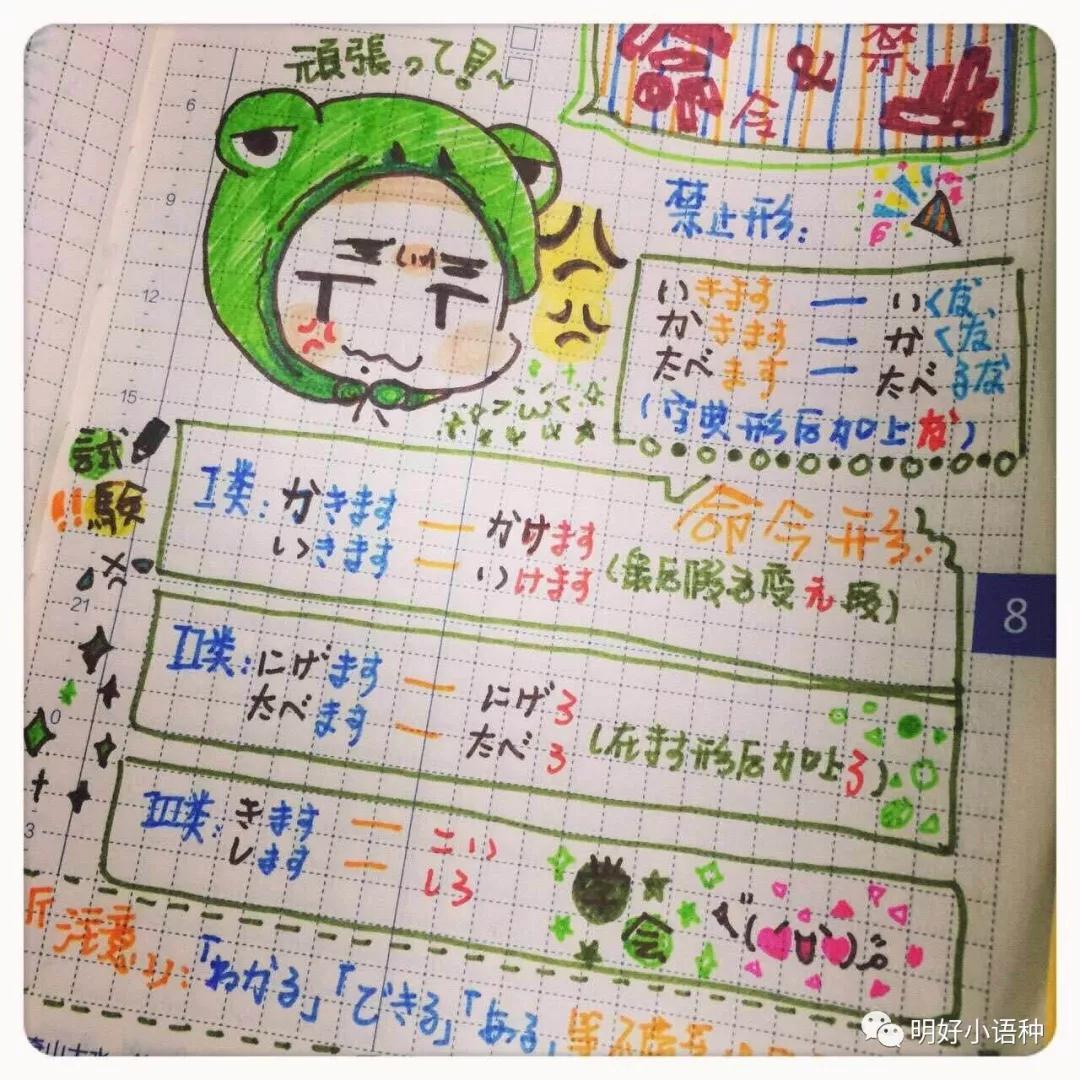 頑張って!~
命 & 禁
令 止
6
9
12
15
21
0
3
8
禁止形:
いきます — いくな
かきます — かくな
たべます — たべるな
(字典形后加上な)
試
!!験
命令形:
I类:かきます — かけます
いきます — いけます (最后段为变え段)
II类:にげます — にげろ
たべます — たべろ (在ます形后加上ろ)
III类:きます — こい
します — しろ
学
会
注意:「わかる」「できる」「ある」等
明好小语种